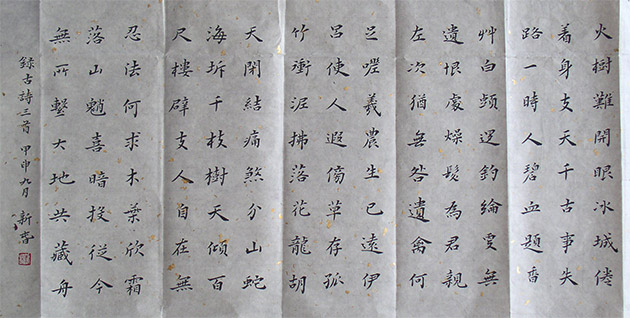 火樹難開眼冰城倦
着身支天千古事失
路一時人碧血題香
艸白頻遲釣綸更無
遺恨處燥髮為君親
左次猶無咎遺禽何
足嗟羲農生已遠伊
呂使人遐傍草存孤
竹衝泥拂落花龍胡
天閉結痛煞分山蛇
海坼千枝樹天傾百
尺樓辟支人自在無
忍法何求木葉欣霜
落山魈喜暗投從今
無所繫大地共藏舟
錄古詩三首 甲申九月 新